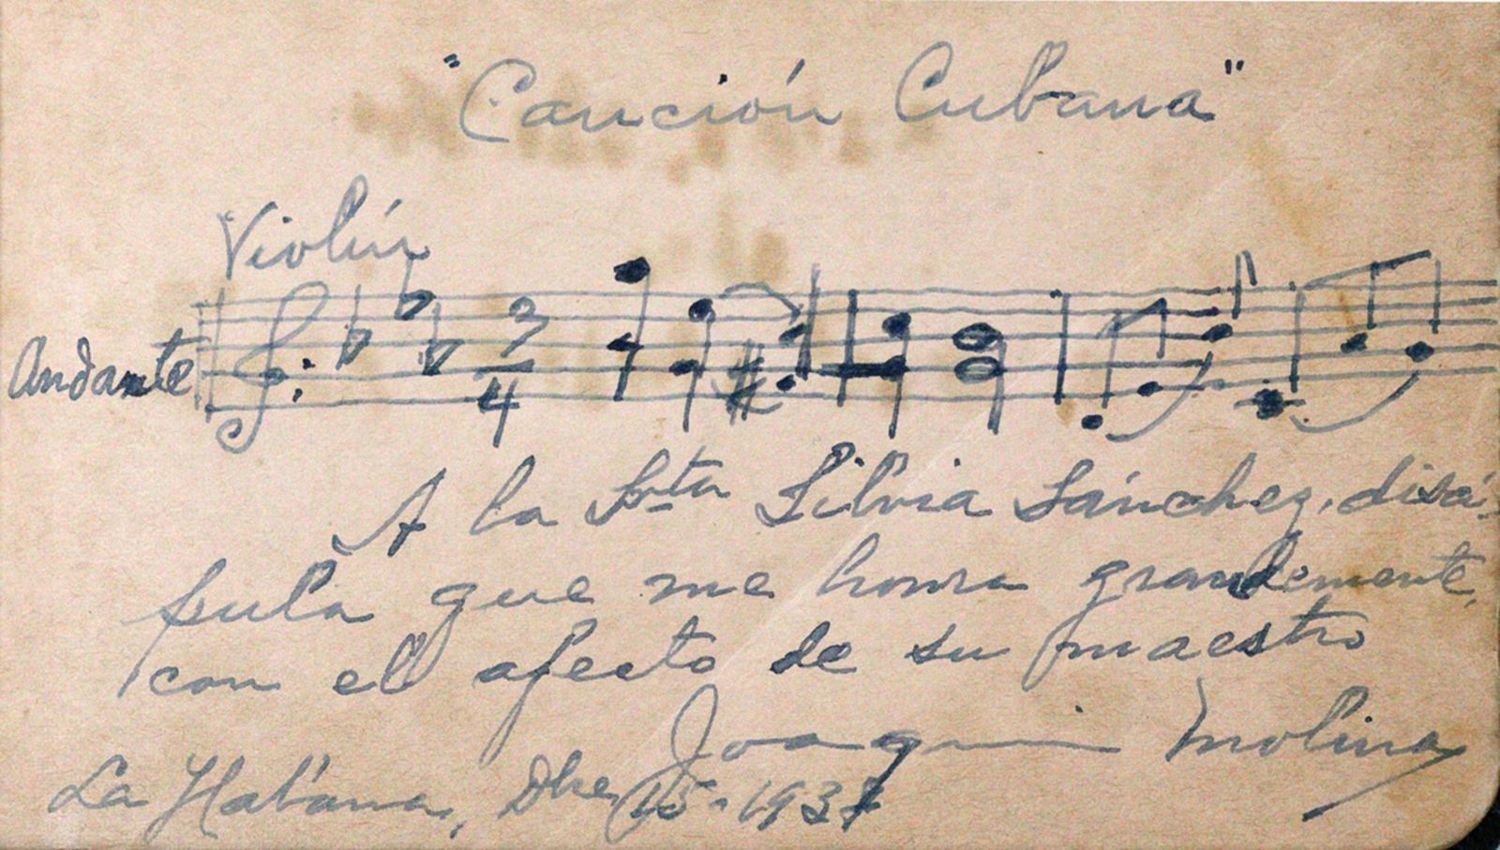 "Canción Cubana"
Violín
Andante
3
4
A la Srta Silvia Sánchez, discí-
pula que me honra grandemente,
con el afecto de su maestro
Joaquin Molina
La Habana, Dbre 15-1937